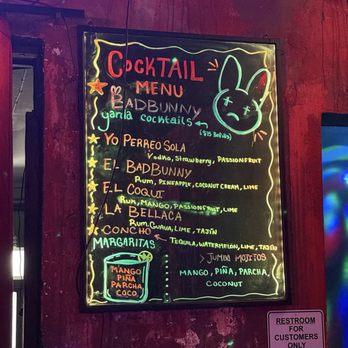 COCKTAIL
MENU
BADBUNNY
yarda cocktails
YO PERREO SOLA
Vodka, Strawberry, PASSIONFRUIT
EL BADBUNNY
RUM, PINEAPPLE, COCONUT CREAM, LIME
EL COQUI
RUM, MANGO, PASSIONFRUIT, LIME
LA BELLACA
RUM, GUAVA, LIME, TAJÍN
CONCHO
TEQUILA, WATERMELON, LIME, TAJÍN
MARGARITAS
MANGO
PIÑA
PARCHA
COCO
> JUMBO MOJITOS
MANGO, PIÑA, PARCHA,
COCONUT
RESTROOM
FOR
CUSTOMERS
ONLY